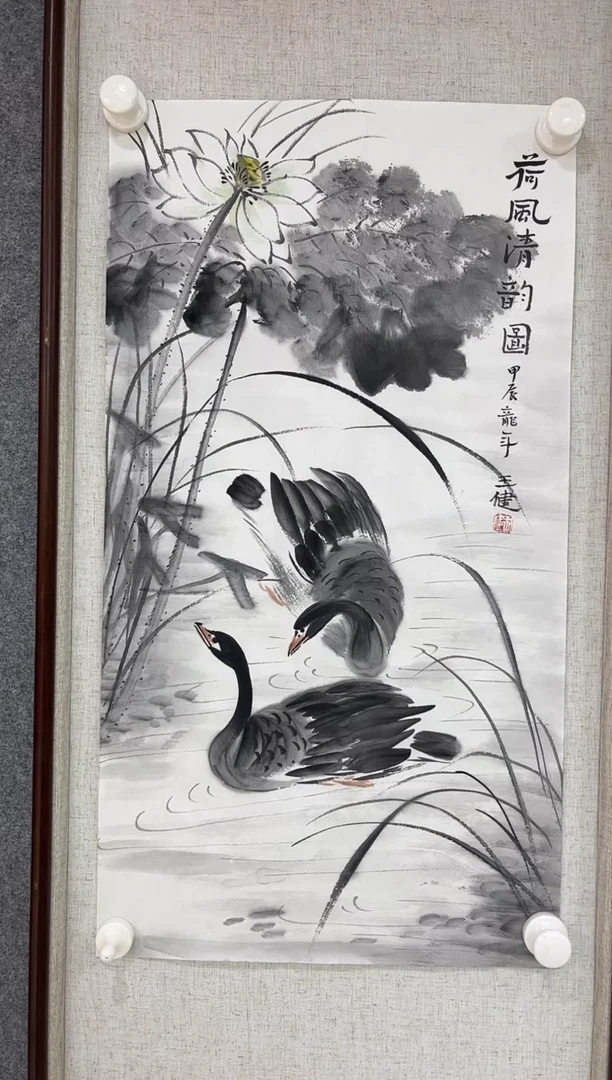 荷風清韵圖
甲辰龍年
王健